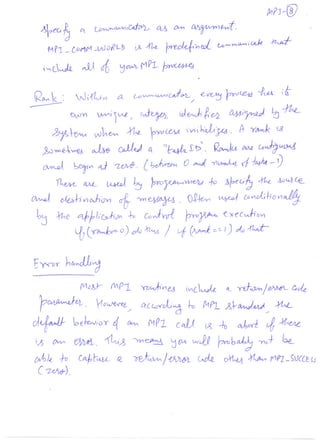 MPI-8
specify a communicator as an argument.
MPI_COMM_WORLD is the predefined communicate that
include all of your MPI processes
Rank : Within a communicator, every process has its
own unique, integer, identifier assigned by the
system when the process initializes. A rank is
sometimes also called a "task ID". Ranks are contiguous
and begin at zero. (between 0 and number of tasks -1)
There are used by programmers to specify the source
and destination of messages. Often used conditionally
by the application to control program execution
if (rank = 0) do this / if (rank == 1) do that
Error handling
Most MPI routines include a return/error code
parameter. However, according to MPI standard, the
default behavior of an MPI call is to abort if there
is an error. This means you will probably not be
able to capture a return/error code other than MPI_SUCCESS
(zero).